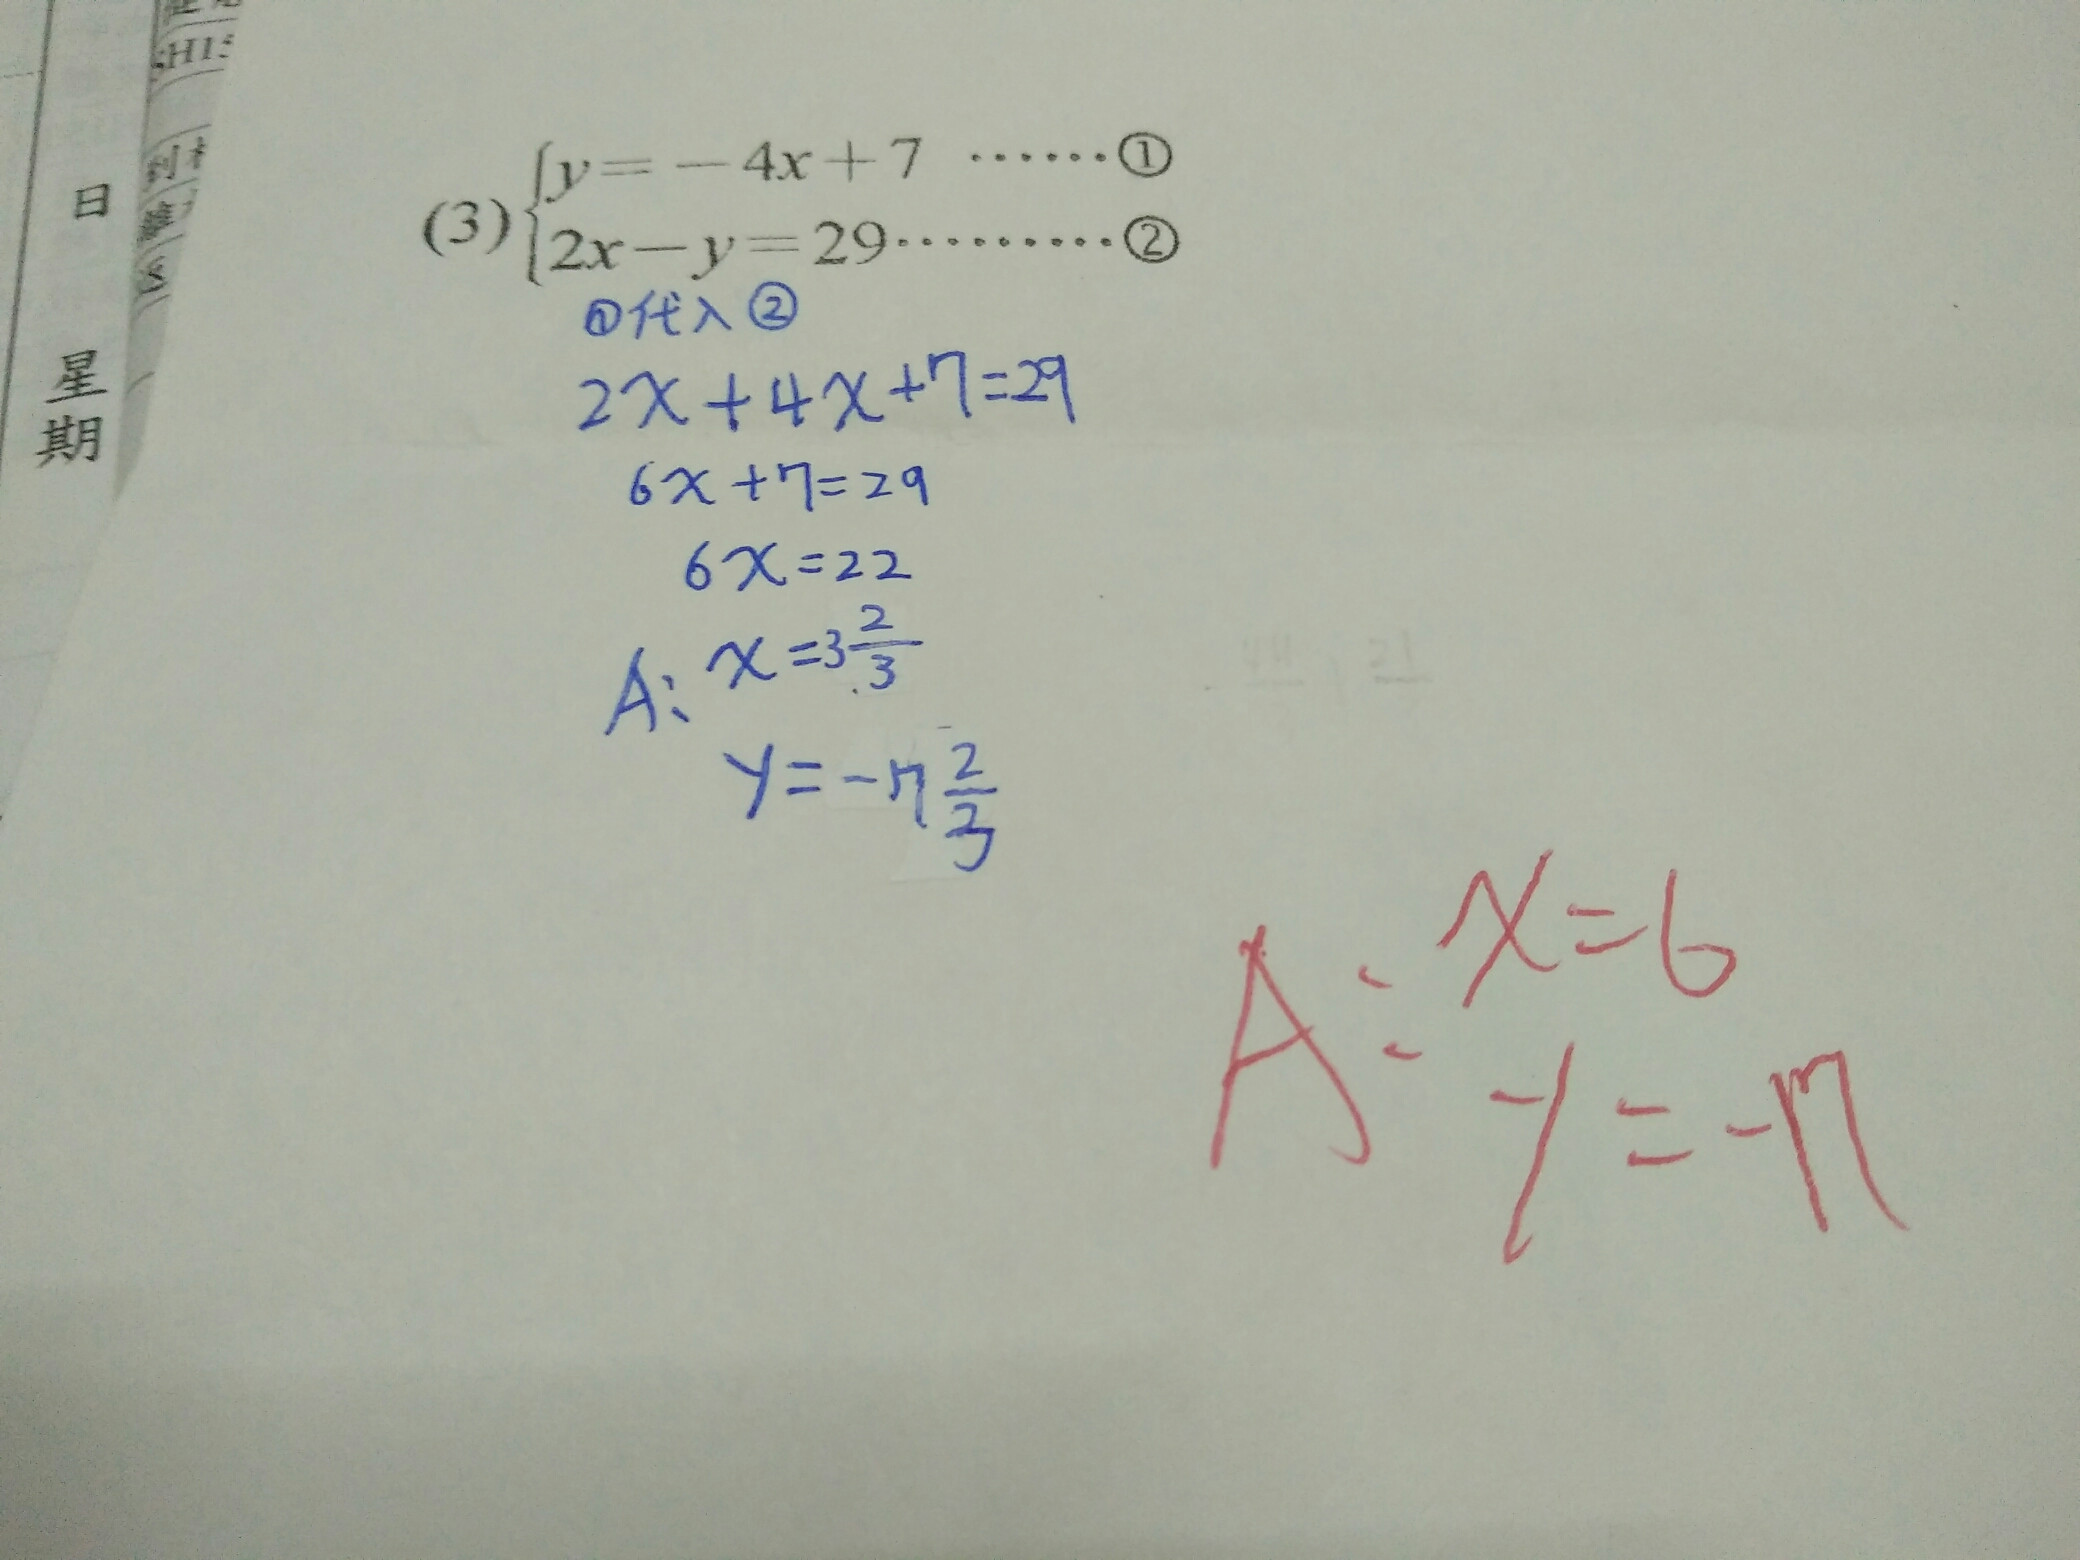 日
星
期
SH15
(3) { y = -4x + 7 ……①
2x - y = 29 ………②
①代入②
2x+4x+7=29
6x+7=29
6x=22
A: x=3 2/3
y=-7 2/3
A: x=6
y=-17